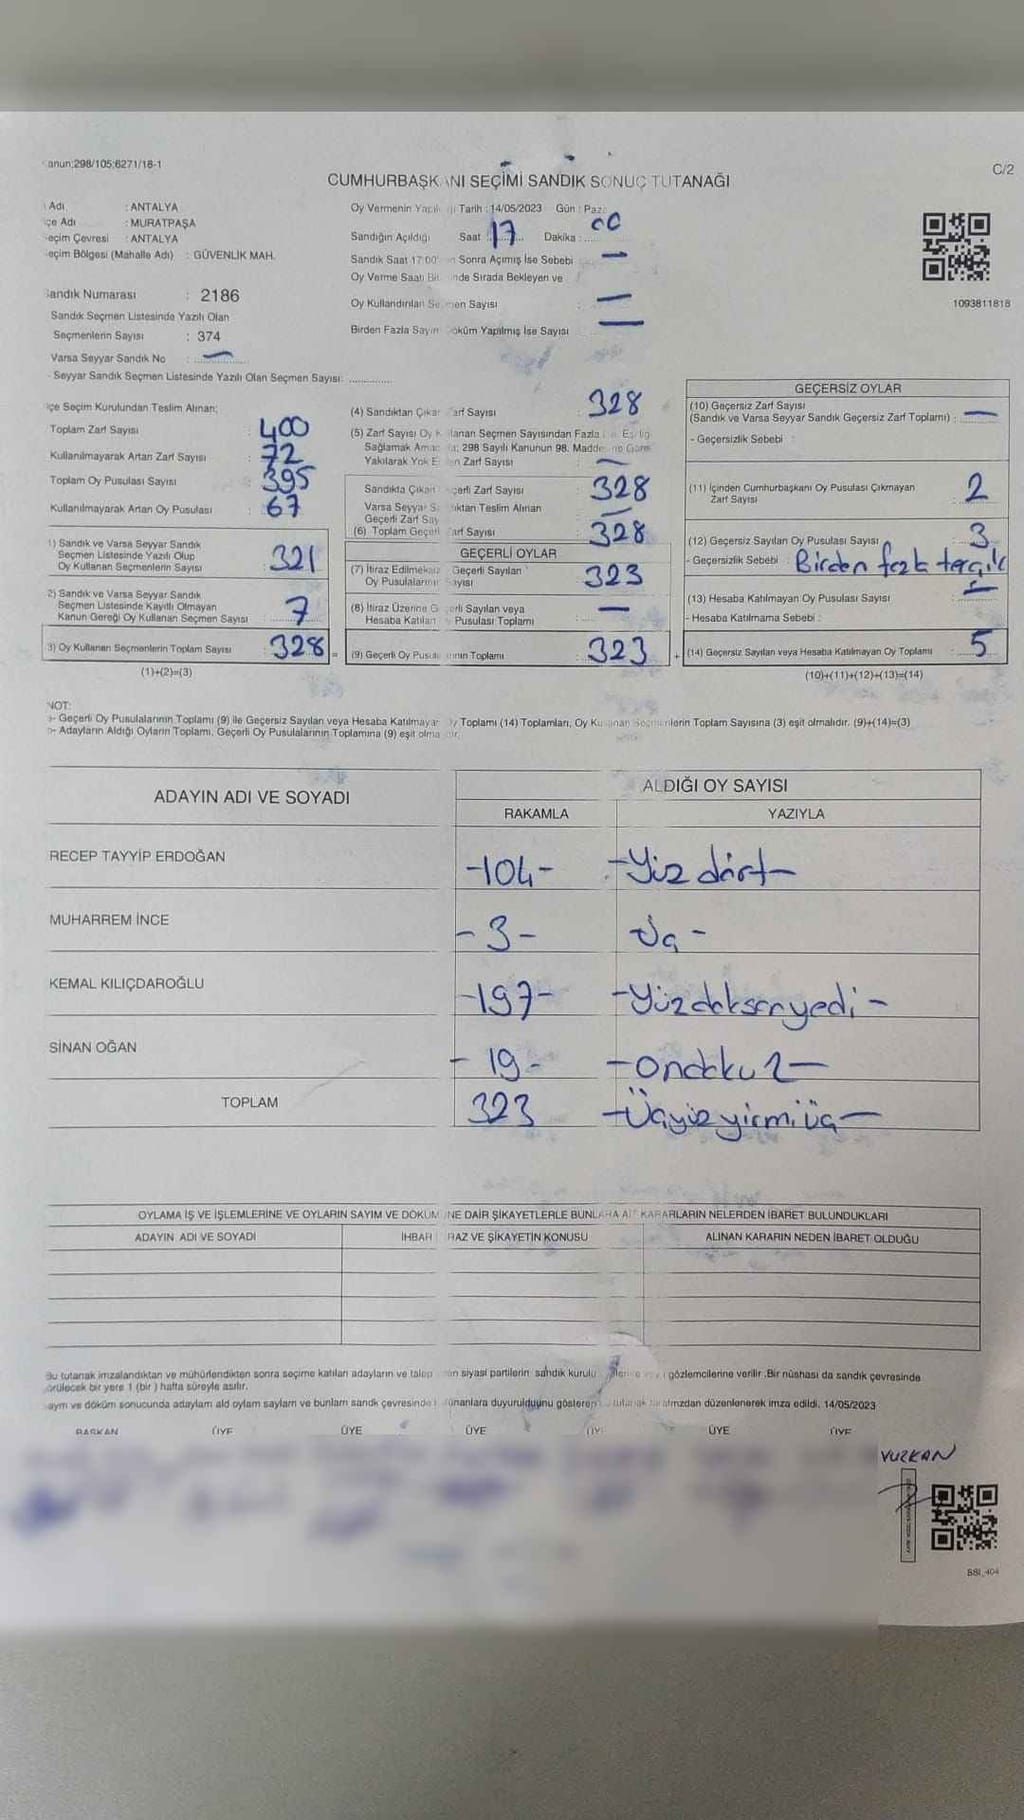 298/105;6271/18-1
C/2
CUMHURBAŞKANI SEÇİMİ SANDIK SONUÇ TUTANAĞI
Adı : ANTALYA
çe Adı : MURATPAŞA
eçim Çevresi : ANTALYA
eçim Bölgesi (Mahalle Adı) : GÜVENLİK MAH.
Sandık Numarası : 2186
Sandık Seçmen Listesinde Yazılı Olan
Seçmenlerin Sayısı : 374
Varsa Seyyar Sandık No : —
- Seyyar Sandık Seçmen Listesinde Yazılı Olan Seçmen Sayısı: ..............
Oy Vermenin Tarih : 14/05/2023 Gün : Paz
Sandığın Açıldığı Saat : 17 Dakika : 00
Sandık Saat 17:00 n Sonra Açımış İse Sebebi : —
Oy Verme Saati Bit nde Sırada Bekleyen ve
Oy Kullandırılan Seçmen Sayısı : —
Birden Fazla Sayım Döküm Yapılmış İse Sayısı : —
1093811818
çe Seçim Kurulundan Teslim Alınan;
Toplam Zarf Sayısı : 400
Kullanılmayarak Artan Zarf Sayısı : 72
Toplam Oy Pusulası Sayısı : 395
Kullanılmayarak Artan Oy Pusulası : 67
1) Sandık ve Varsa Seyyar Sandık
Seçmen Listesinde Yazılı Olup
Oy Kullanan Seçmenlerin Sayısı : 321
2) Sandık ve Varsa Seyyar Sandık
Seçmen Listesinde Kayıtlı Olmayan
Kanun Gereği Oy Kullanan Seçmen Sayısı : 7
3) Oy Kullanan Seçmenlerin Toplam Sayısı : 328 =
(1)+(2)=(3)
(4) Sandıktan Çıkan Zarf Sayısı : 328
(5) Zarf Sayısı Oy Kullanan Seçmen Sayısından Fazla
Sağlamak Ama 298 Sayılı Kanunun 98. Madde
Yakılarak Yok E n Zarf Sayısı : —
Sandıkta Çıkan Geçerli Zarf Sayısı : 328
Varsa Seyyar Sandıktan Teslim Alınan
Geçerli Zarf Say : —
(6) Toplam Geçerli Zarf Sayısı : 328
GEÇERLİ OYLAR
(7) İtiraz Edilmeksizin Geçerli Sayılan
Oy Pusulalarının Sayısı : 323
(8) İtiraz Üzerine Geçerli Sayılan veya
Hesaba Katılan Pusulası Toplamı : —
(9) Geçerli Oy Pusulalarının Toplamı : 323 +
GEÇERSİZ OYLAR
(10) Geçersiz Zarf Sayısı
(Sandık ve Varsa Seyyar Sandık Geçersiz Zarf Toplamı) : —
- Geçersizlik Sebebi :
(11) İçinden Cumhurbaşkanı Oy Pusulası Çıkmayan
Zarf Sayısı : 2
(12) Geçersiz Sayılan Oy Pusulası Sayısı : 3
- Geçersizlik Sebebi : Birden fazla tercih
(13) Hesaba Katılmayan Oy Pusulası Sayısı : —
- Hesaba Katılmama Sebebi :
(14) Geçersiz Sayılan veya Hesaba Katılmayan Oy Toplamı : 5
(10)+(11)+(12)+(13)=(14)
NOT:
a- Geçerli Oy Pusulalarının Toplamı (9) ile Geçersiz Sayılan veya Hesaba Katılmayan Oy Toplamı (14) Toplamları, Oy Kullanan Seçmenlerin Toplam Sayısına (3) eşit olmalıdır. (9)+(14)=(3)
b- Adayların Aldığı Oyların Toplamı, Geçerli Oy Pusulalarının Toplamına (9) eşit olmalıdır.
ADAYIN ADI VE SOYADI
ALDIĞI OY SAYISI
RAKAMLA YAZIYLA
RECEP TAYYİP ERDOĞAN -104- -Yüz dört-
MUHARREM İNCE -3- -Üç-
KEMAL KILIÇDAROĞLU -197- -Yüzdoksanyedi-
SİNAN OĞAN -19- -ondokuz-
TOPLAM 323 -Üçyüzyirmiüç-
OYLAMA İŞ VE İŞLEMLERİNE VE OYLARIN SAYIM VE DÖKÜMÜNE DAİR ŞİKAYETLERLE BUNLARA AİT KARARLARIN NELERDEN İBARET BULUNDUKLARI
ADAYIN ADI VE SOYADI İHBAR İTİRAZ VE ŞİKAYETİN KONUSU ALINAN KARARIN NEDEN İBARET OLDUĞU
Bu tutanak imzalandıktan ve mühürlendikten sonra seçime katılan adayların ve talep eden siyasi partilerin sandık kurulu gözlemcilerine verilir .Bir nüshası da sandık çevresinde
görülecek bir yere 1 (bir ) hafta süreyle asılır.
ayım ve döküm sonucunda adayların ald oyların sayıları ve bunların sandk çevresinde ulunanlara duyurulduğunu gösteren tutanak tarafımızdan düzenlenerek imza edildi. 14/05/2023
BAŞKAN ÜYE ÜYE ÜYE ÜYE ÜYE ÜYE
VURKAN
BSI_404